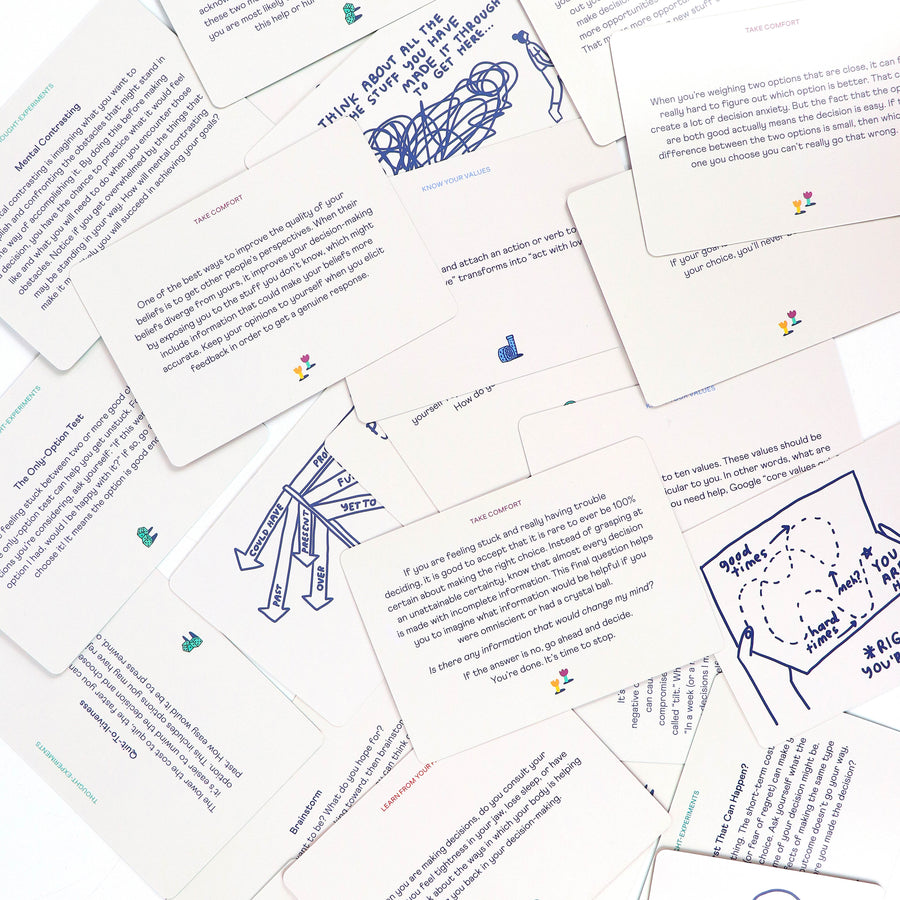 these two ma
you are most likely
this help or hu
THINK ABOUT ALL THE
STUFF YOU HAVE
MADE IT THROUGH
TO
GET HERE..
make decision
more opportunities
That m more opport
new stuff
TAKE COMFORT
When you're weighing two options that are close, it can f
really hard to figure out which option is better. That c
create a lot of decision anxiety. But the fact that the op
are both good actually means the decision is easy. If t
difference between the two options is small, then whic
one you choose you can't really go that wrong.
THOUGHT-EXPERIMENTS
Mental Contrasting
tal contrasting is imagining what you want to
plish and confronting the obstacles that might stand in
e way of accomplishing it. By doing this before making
decision, you have the chance to practice what it would feel
like and what you will need to do when you encounter those
obstacles. Notice if you get overwhelmed by the things that
may be standing in your way. How will mental contrasting
make it m
ly you will succeed in achieving your goals?
TAKE COMFORT
One of the best ways to improve the quality of your
beliefs is to get other people's perspectives. When their
beliefs diverge from yours, it improves your decision-making
by exposing you to the stuff you don't know, which might
include information that could make your beliefs more
accurate. Keep your opinions to yourself when you elicit
feedback in order to get a genuine response.
KNOW YOUR VALUES
and attach an action or verb to
ve" transforms into "act with lov
If your goa
your choice, you'll never
yourself
How do yo
YOUR VALUES
to ten values. These values should be
icular to you. In other words, what are
ou need help, Google "core values
HT-EXPERIMENTS
The Only-Option Test
feeling stuck between two or more good o
only-option test can help you get unstuck. F
ions you're considering, ask yourself: "If this we
option I had, would I be happy with it?" If so, go
choose it! It means the option is good en
COULD HAVE
PAST
PRESENT
OVER
YET TO
TAKE COMFORT
If you are feeling stuck and really having trouble
deciding, it is good to accept that it is rare to ever be 100%
certain about making the right choice. Instead of grasping at
an unattainable certainty, know that almost every decision
is made with incomplete information. This final question helps
you to imagine what information would be helpful if you
were omniscient or had a crystal ball.
Is there any information that would change my mind?
If the answer is no, go ahead and decide.
You're done. It's time to stop.
good
times
meh?!
hard
times
YOU
AR
H
*RIG
YOU'R
THOUGHT-EXPERIMENTS
Quit-To-Itiveness
The lower the cost to quit, the faster you can
unwind the decision and choose
past. How easy would it be to press rewind
Brainstorm
ant to be? What do you hope for?
toward, then brainstor
can think
LEARN FROM YOUR
you are making decisions, do you consult your
you feel tightness in your jaw, lose sleep, or have
k about the ways in which your body is helping
you back in your decision-making.
It's
negative
can cau
compromise
called "tilt." Wh
"In a week (or a
decisions I m
HT-EXPERIMENTS
st That Can Happen?
thing. The short-term cost
or fear of regret) can make
choice. Ask yourself what the
me of your decision might be.
ects of making the same type
outcome doesn't go your way.
re you made the decision?